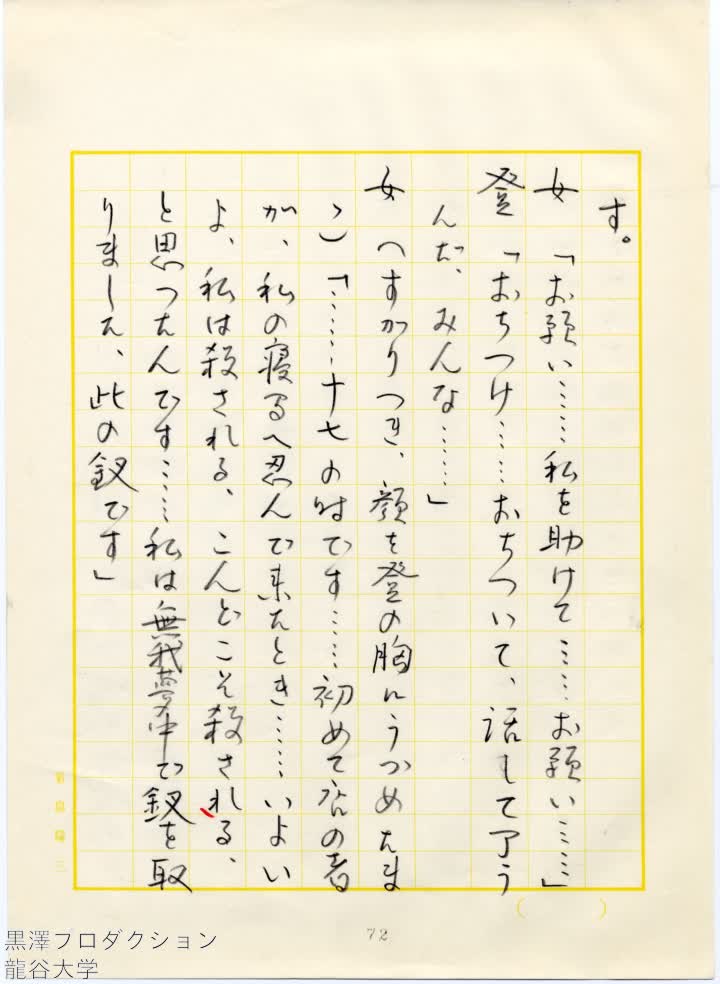 す。
女「お願い……私を助けて……お願い……」
登「おちつけ……おちついて、話して了う
んだ、みんな……」
女(すがりつき、顔を登の胸にうづめたま
ゝ)「……十七の時です……初めて店の者
が、私の寝間へ忍んで来たとき……いよい
よ、私は殺される、こんどこそ殺される、
と思つたんです……私は無我夢中で釵を取
りました、此の釵です」
72
黒澤プロダクション
龍谷大学